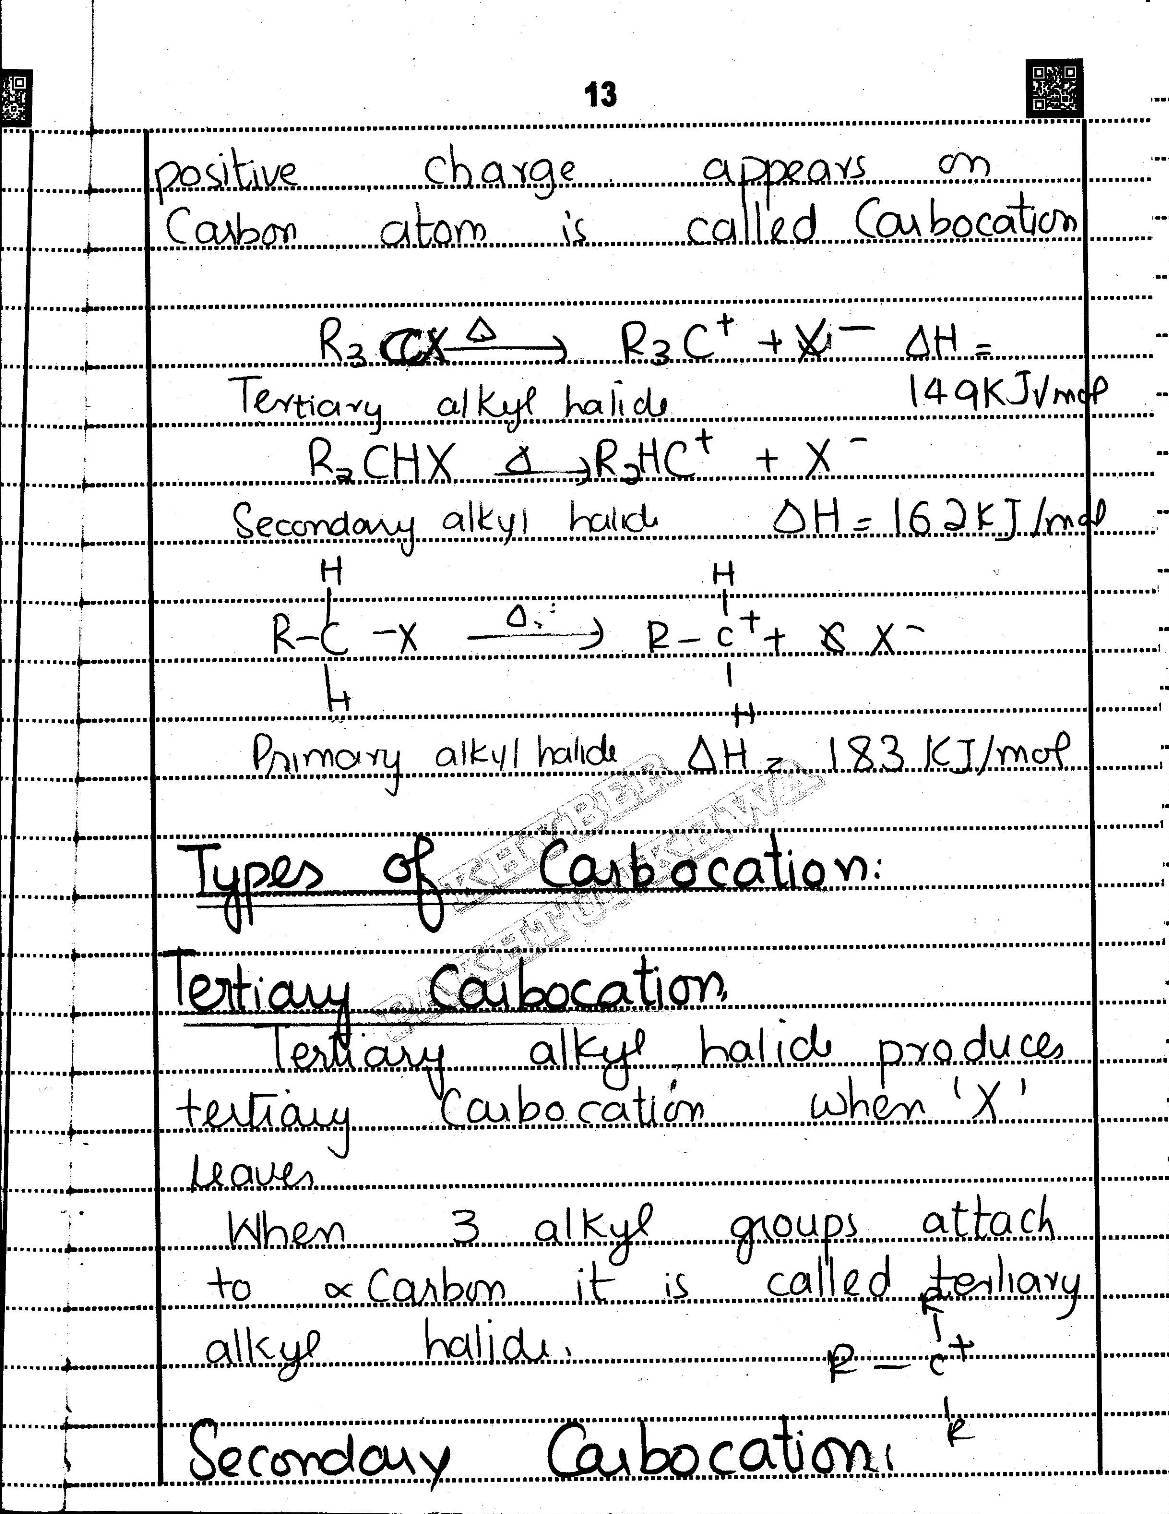 13
positive charge appears on
Carbon atom is called Carbocation
R3 CX Δ → R3C+ + X− ΔH =
Tertiary alkyl halide 149KJ/mol
R2CHX Δ → R2HC+ + X−
Secondary alkyl halide ΔH = 162KJ/mol
H H
R-C-X Δ → R-C+ + X−
H H
Primary alkyl halide ΔH = 183 KJ/mol
KHYBER
PAKHTUNKHWA
Types of Carbocation:
Tertiary Carbocation.
Tertiary alkyl halide produces
tertiary Carbocation when 'X'
leaves
When 3 alkyl groups attach
to ∝ Carbon it is called tertiary
R
alkyl halide. R-C+
R
Secondary Carbocation.